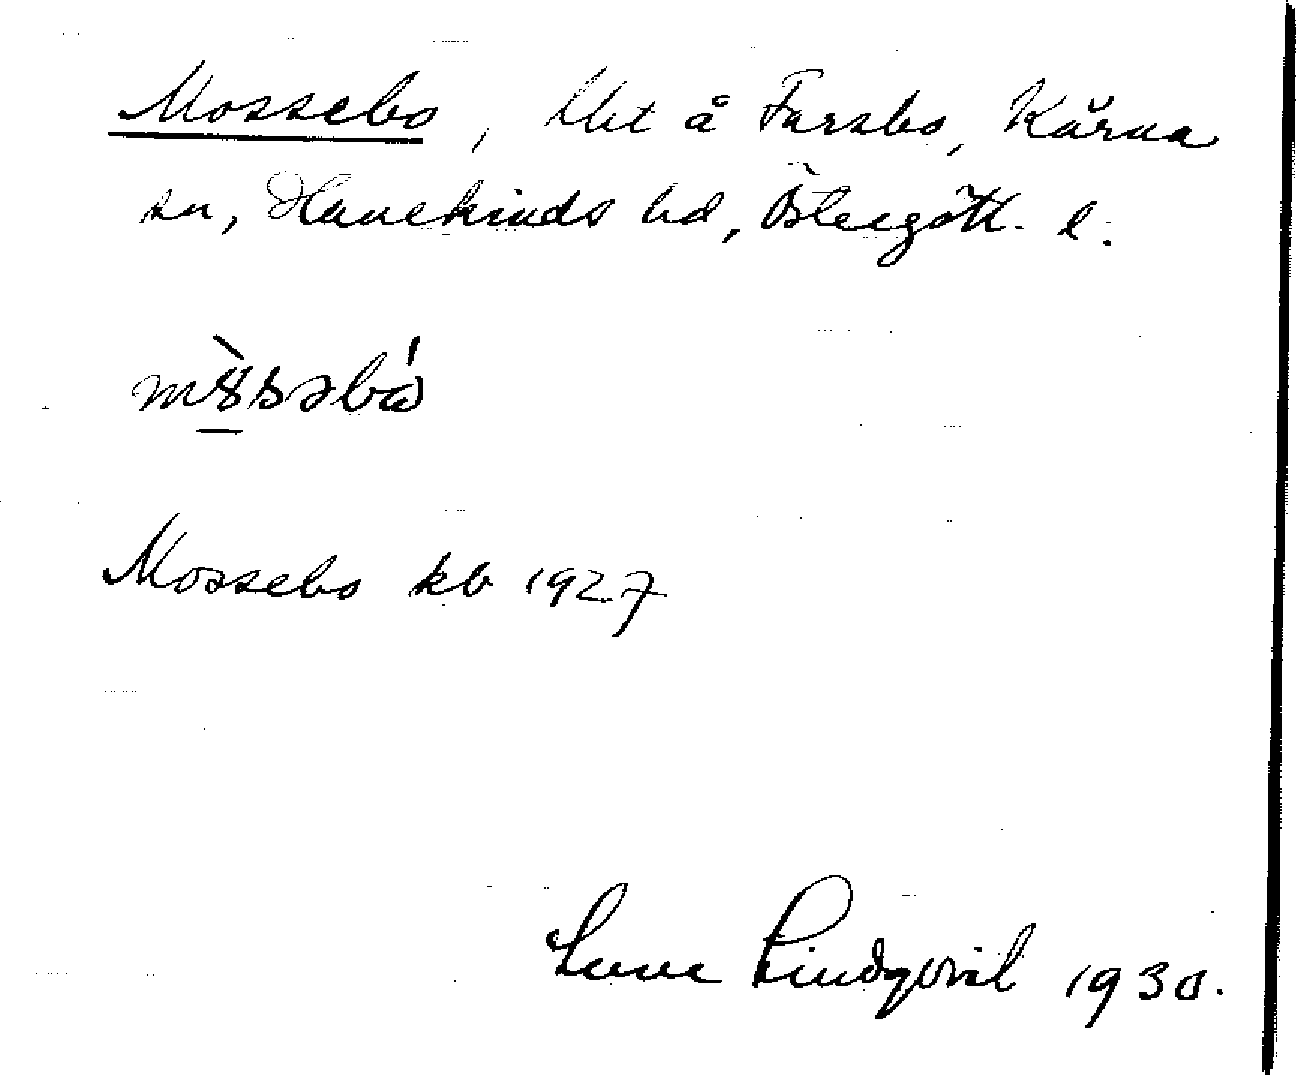 Mossebo, lht å Farsbo, Kärna
sn, Hanekinds hd, Östergötl. l.
m8̀ssəbó
Mossebo kb 1927
Lindqvist 1930.